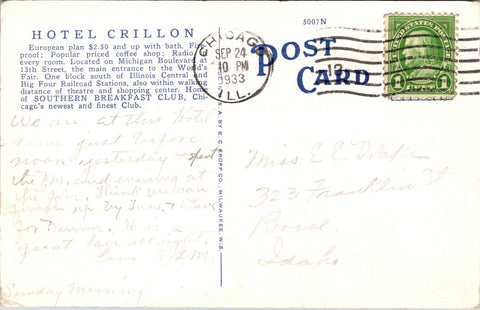 HOTEL CRILLON
European plan $2.50 and up with bath. Fire-
proof; Popular priced coffee shop; Radio
every room. Located on Michigan Boulevard at
13th Street, the main entrance to the World's
Fair. One block south of Illinois Central and
Big Four Railroad Stations, also within walking
distance of theatre and shopping center. Home
of SOUTHERN BREAKFAST CLUB, Chi-
cago's newest and finest Club.
We are at this Hotel
Came just before
noon yesterday & spent
the P.M. and evening at
the fair. Think we can
finish up by Tues. & leave
for Denver. It is a
great fair all right.
Love E.L.M.
Sunday Morning
CHICAGO
SEP 24
10 PM
1933
ILL.
5007N
POST
CARD
12
1
1
E. C. KROPP CO., MILWAUKEE, WIS.
Miss E E Drake
323 Franklin St
Boise
Idaho